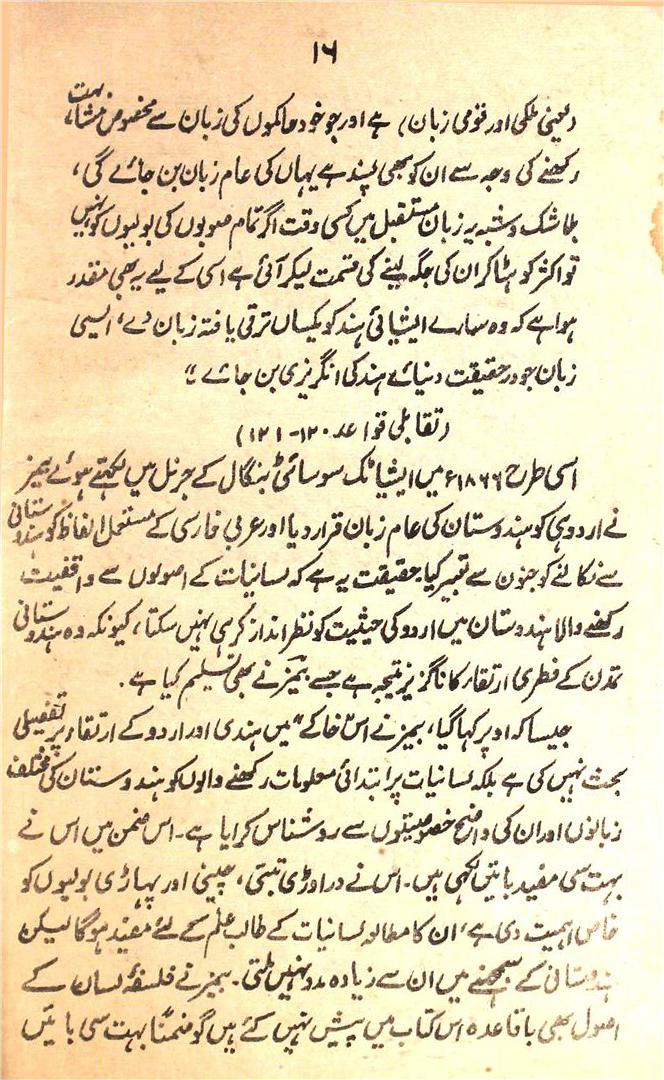 ۱۶
(یعنی ملکی اور قومی زبان) ہے اور جو خود حاکموں کی زبان سے مخصوص مشابہت
رکھنے کی وجہ سے ان کو بھی پسند ہے یہاں کی عام زبان بن جائے گی،
بلا شک و شبہ یہ زبان مستقبل میں کسی وقت اگر تمام صوبوں کی بولیوں کو نہیں
تو اکثر کو ہٹا کر ان کی جگہ لینے کی قسمت لیکر آئی ہے اسی کے لیے یہ بھی مقدر
ہوا ہے کہ وہ سارے ایشیائی ہند کو یکساں ترقی یافتہ زبان دے، ایسی
زبان جو در حقیقت دنیائے ہند کی انگریزی بن جائے"
(تقابلی قواعد ۱۲۰-۱۲۱)
اسی طرح ۱۸۶۶ء میں ایشیاٹک سوسائٹی بنگال کے جرنل میں لکھتے ہوئے بیمز
نے اردو ہی کو ہندوستان کی عام زبان قرار دیا اور عربی فارسی کے مستعمل الفاظ کو ہندوستانی
سے نکالنے کو جنون سے تعبیر کیا۔ حقیقت یہ ہے کہ لسانیات کے اصولوں سے واقفیت
رکھنے والا ہندوستان میں اردو کی حیثیت کو نظر انداز کر ہی نہیں سکتا، کیونکہ وہ ہندوستانی
تمدن کے فطری ارتقار کا ناگزیز نتیجہ ہے جسے بیمز نے بھی تسلیم کیا ہے۔
جیسا کہ اوپر کہا گیا، بیمز نے اس "خاکے" میں ہندی اور اردو کے ارتقاء پر تفصیلی
بحث نہیں کی ہے بلکہ لسانیات پر ابتدائی معلومات رکھنے والوں کو ہندوستان کی مختلف
زبانوں اور ان کی واضح خصوصیتوں سے روشناس کرایا ہے۔ اس ضمن میں اس نے
بہت سی مفید باتیں لکھی ہیں۔ اس نے دراوڑی تبتی، چینی اور پہاڑی بولیوں کو
خاص اہمیت دی ہے، ان کا مطالعہ لسانیات کے طالب علم کے لئے مفید ہوگا لیکن
ہندوستانی کے سمجھنے میں ان سے زیادہ مدد نہیں ملتی۔ بیمز نے فلسفۂ لسان کے
اصول بھی باقاعدہ اس کتاب میں پیش نہیں کئے ہیں گو ضمناً بہت سی باتیں